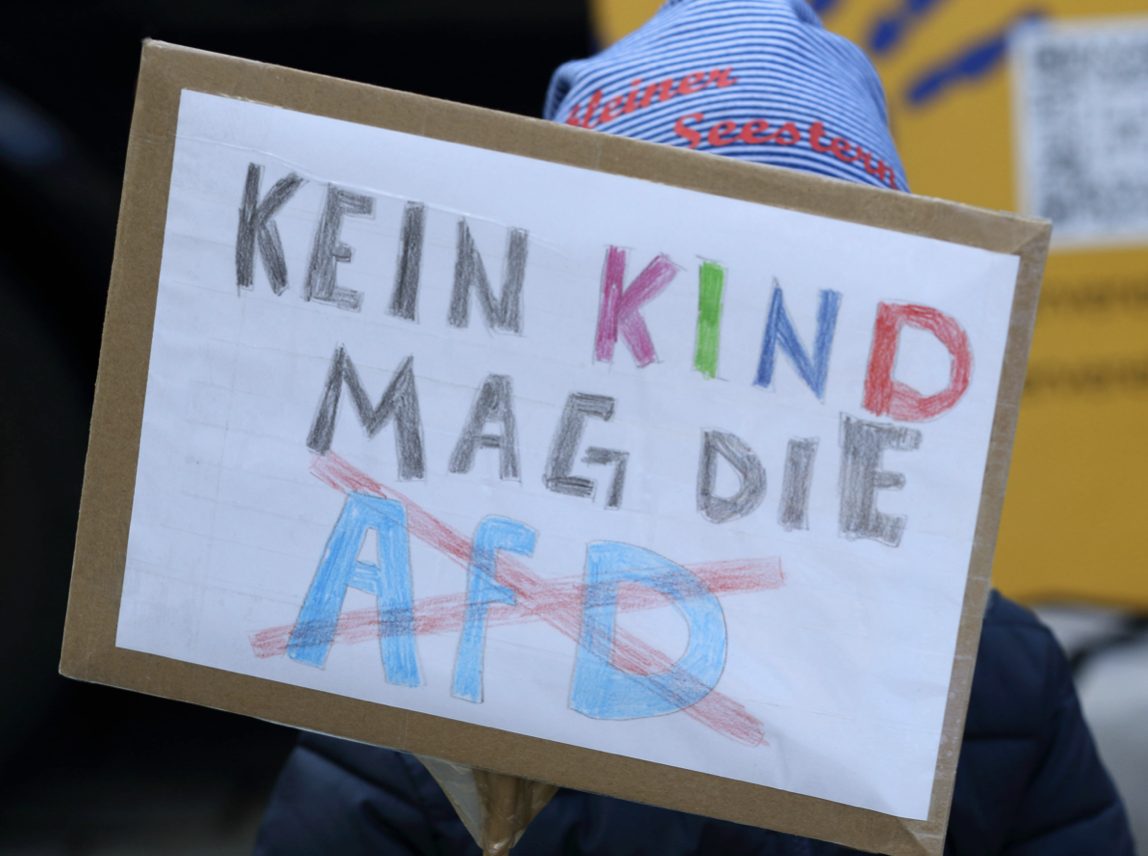 kleiner
Seestern
KEIN KIND
MAG DIE
AfD